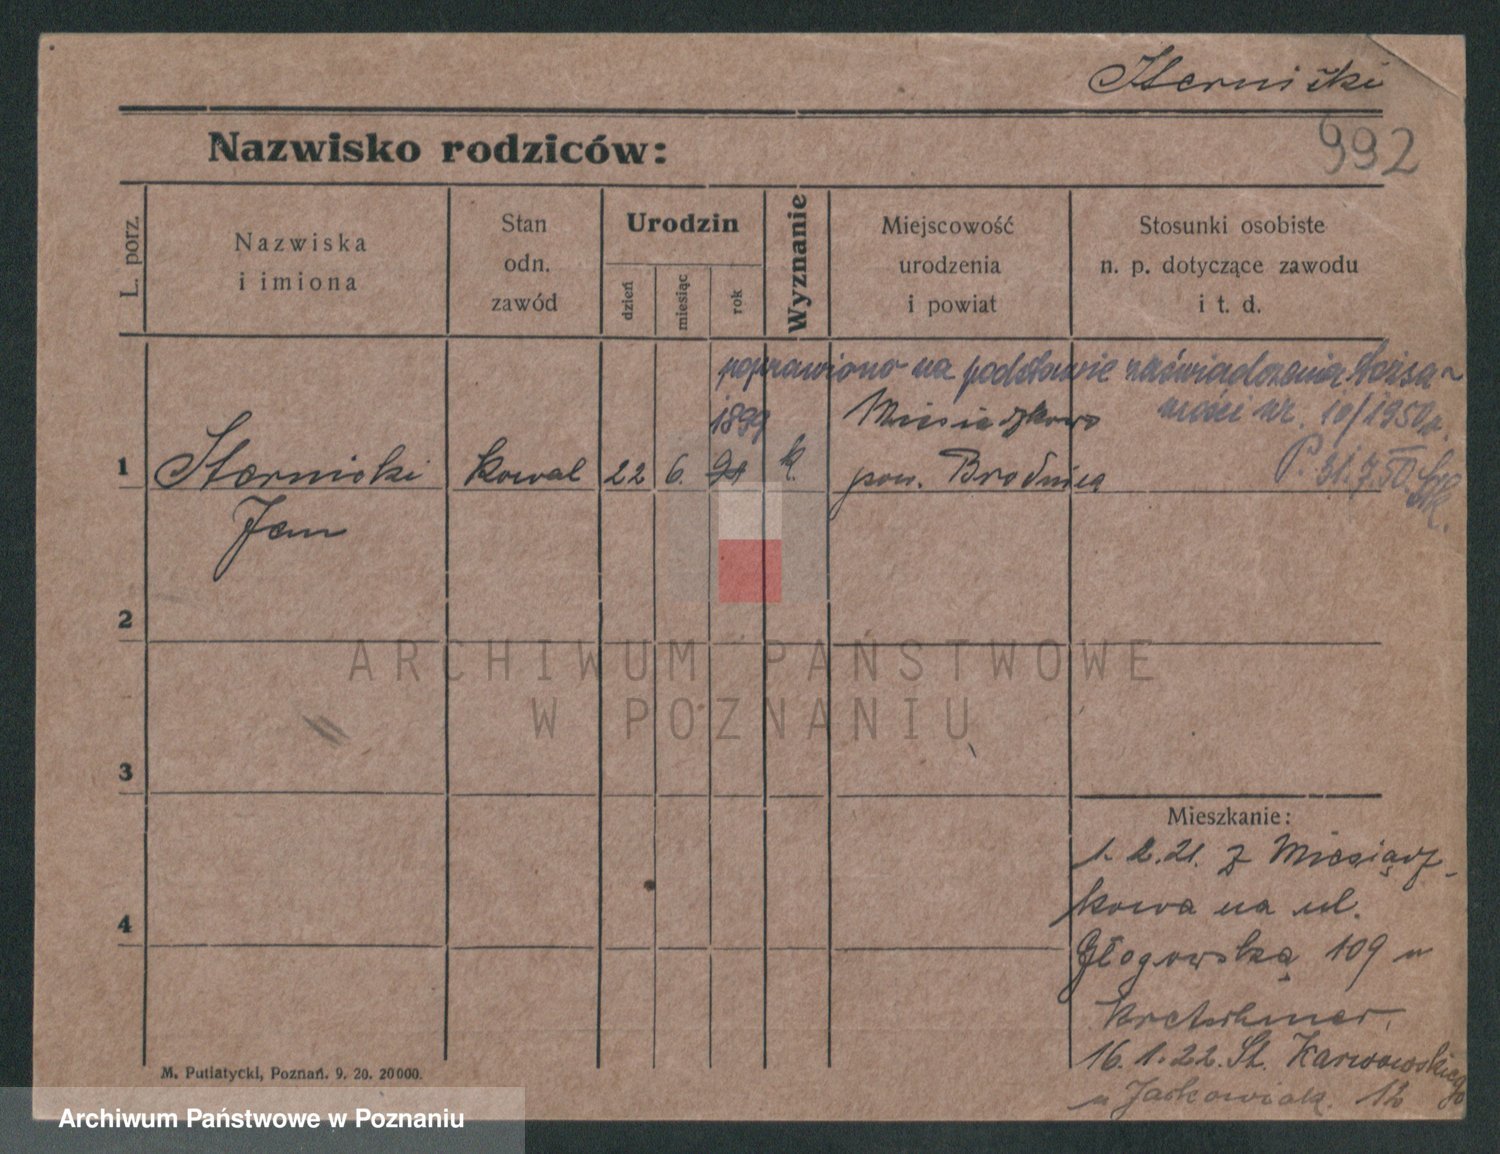 Sternicki
992
Nazwisko rodziców:
L. porz.
Nazwiska
i imiona
Stan
odn.
zawód
Urodzin
dzień
miesiąc
rok
Wyznanie
Miejscowość
urodzenia
i powiat
Stosunki osobiste
n. p. dotyczące zawodu
i t. d.
poprawiono na podstawie zaświadczenia tożsa-
mości nr. 10/1950r.
P. 31.7.50.
1899
Miesiączkowo
1 Sternicki kowal 22 6. 91 k. pow. Brodnica
Jan
2
3
4
ARCHIWUM PAŃSTWOWE
W POZNANIU
Mieszkanie:
1. 2. 21. z Miesiącz-
kowa na ul.
Głogowską 109 u
Kretschmer.
16. 1. 22. St. Karwowskiego
u Jaskowiak. 12
M. Putiatycki, Poznań. 9. 20. 20000.
Archiwum Państwowe w Poznaniu